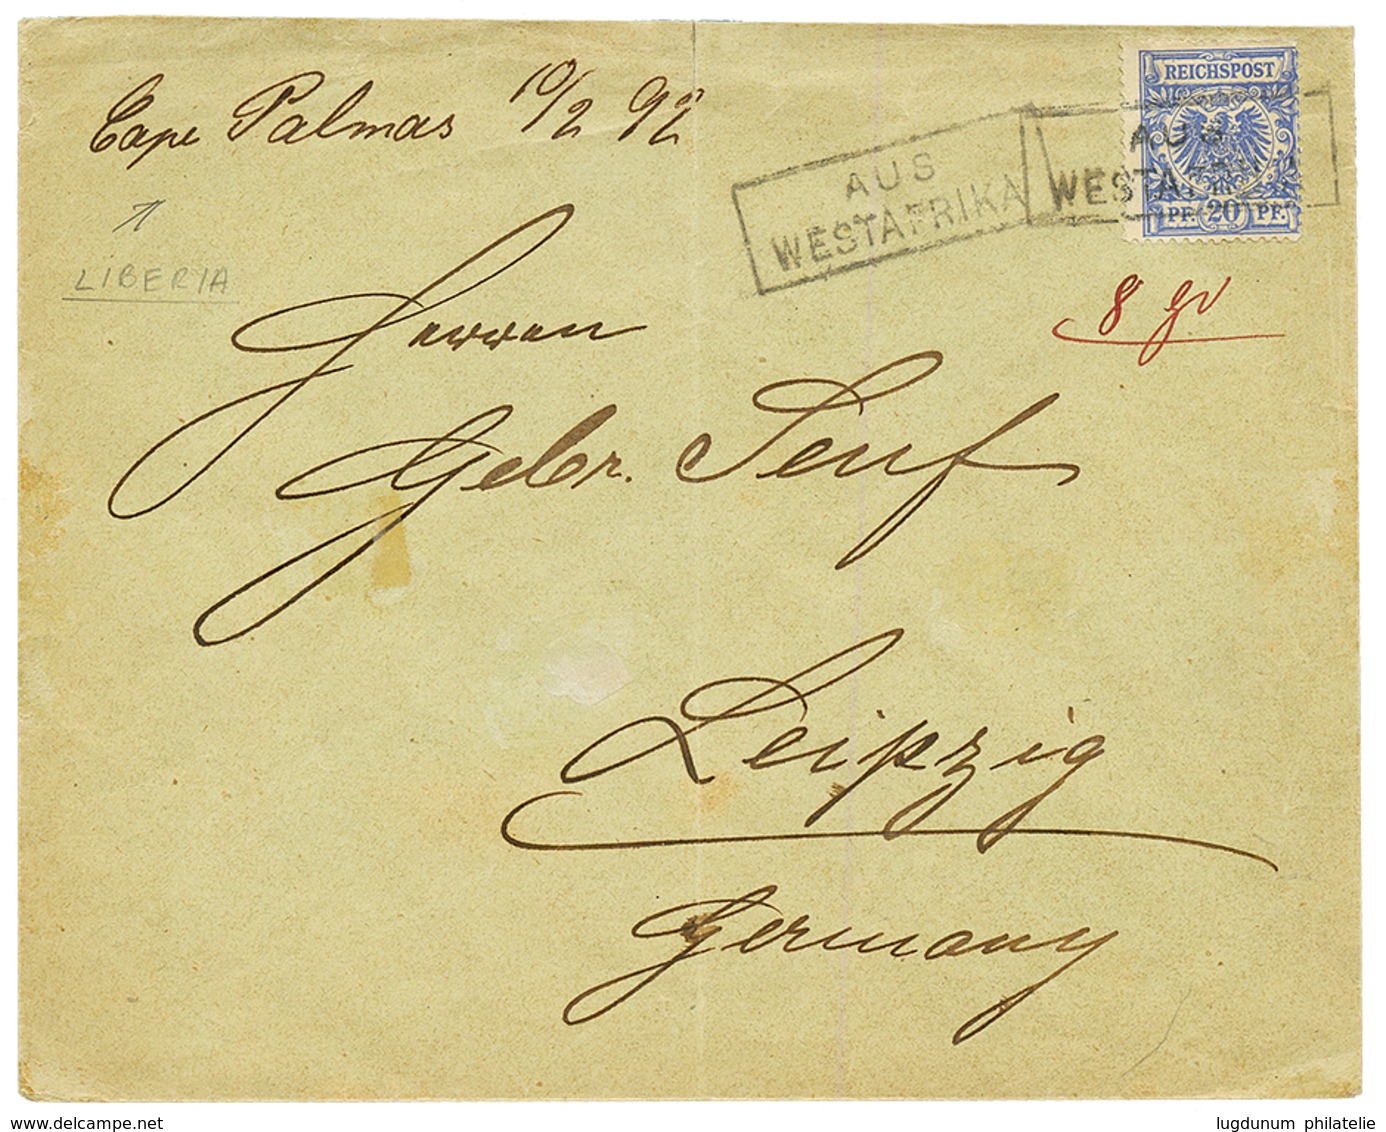 Cape Palmas 10/2 92
LIBERIA
REICHSPOST
PF. 20 PF.
AUS
WESTAFRIKA
AUS
WESTAFRIKA
8 gr
Herren
Gebr. Senf
Leipzig
Germany
www.delcampe.net
lugdunum philatelie